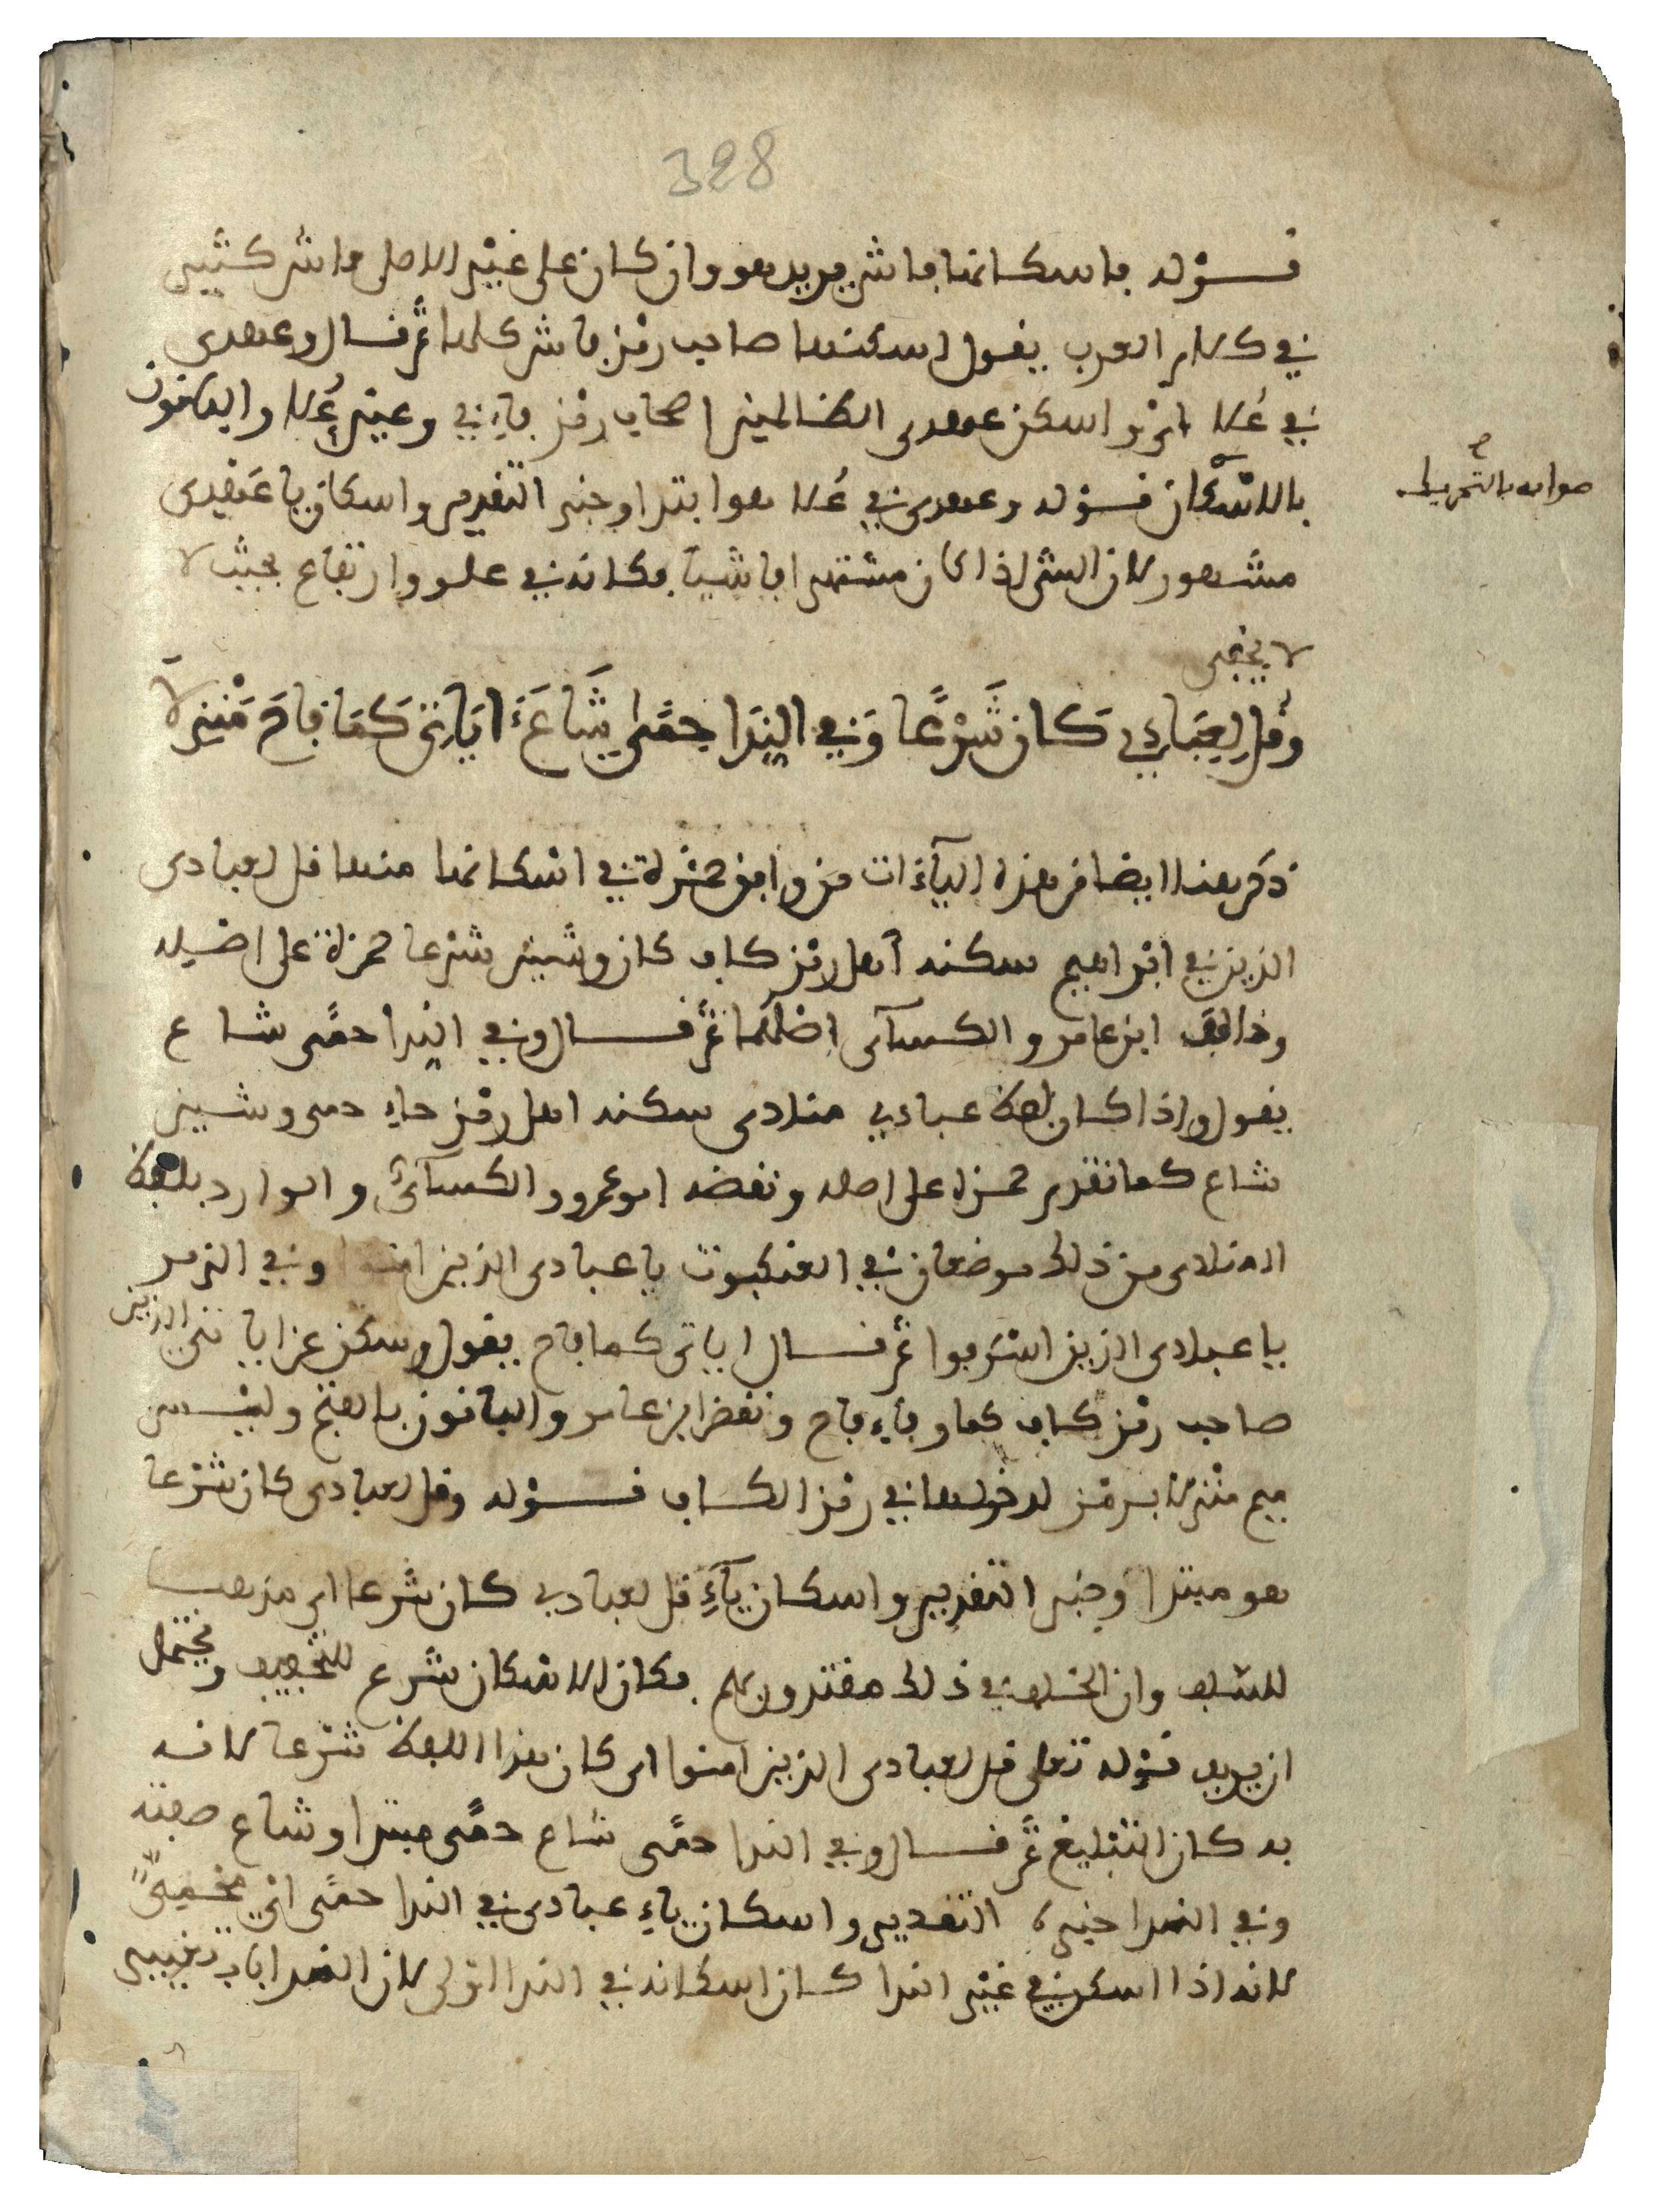 328
قوله فاسكانها فاش يريد هو وان كان على غير الاصل فاش كثير
في كلام العرب يقول اسكنها صاحب رمز فاش كلها ثم قال وعهدي
في علا اي واسكن عهدي الظالمين اصحاب رمز فاء في وعين علا والباقون
بالاسكان قوله وعهدي في علا هو ابتدا وخبر التقدير واسكان يا عهدي
صوابه بالتحريك
مشهور لان الشي اذا كان مشتهرا فاشيا فكانه في علو وارتفاع بحيث لا
لا يخفى
وَقُل لِعِبَادِي كَانَ شَرْعًا وَفي النِّدَا حِمًى شَاعَ ءَايَاتِي كَمَا فَاحَ مَنْزِلَا
ذكر هنا ايضا من هذه الياءات من وافق حمزة في اسكانها منها قل لعبادي
الذين في ابراهيم سكنه اهل رمز كاف كان وشين شرعا حمزة على اصله
وخالف ابن عامر والكسائي اصلهما ثم قال وفي الندا حمى شاع
يقول واذا كان لفظ عبادي منادى سكنه اهل رمز حاء حمى وشين
شاع كما تقدم حمزة على اصله ونقضه ابو عمرو والكسائي والوارد بلفظ
المنادى من ذلك موضعان في العنكبوت يا عبادي الذين امنوا وفي الزمر
يا عبادي الذين اسرفوا ثم قال اياتي كما فاح يقول وسكن عن اياتي الذين
صاحب رمز كاف كما وفاء فاح ونقض ابن عامر والباقون بالفتح وليس
ميم منزلا برمز لدخولها في رمز الكاف قوله وقل لعبادي كان شرعا
هو مبتدا وخبر التقدير واسكان ياء قل لعبادي كان شرعا اي مذهبا
للسلف وان الخلف في ذلك مقتدون بهم فكان الاسكان شرع للتخفيف ويحتمل
ان يريد قوله تعلى قل لعبادي الذين امنوا اي كان هذا اللفظ شرعا لانه
به كان التبليغ ثم قال وفي الندا حمى شاع حمى مبتدا وشاع صفته
وفي الندا خبره التقدير واسكان ياء عبادي في الندا حمى اي محميا
لانه اذا اسكن في غير الندا كان اسكانه في الندا اولى لان الندا باب تغيير